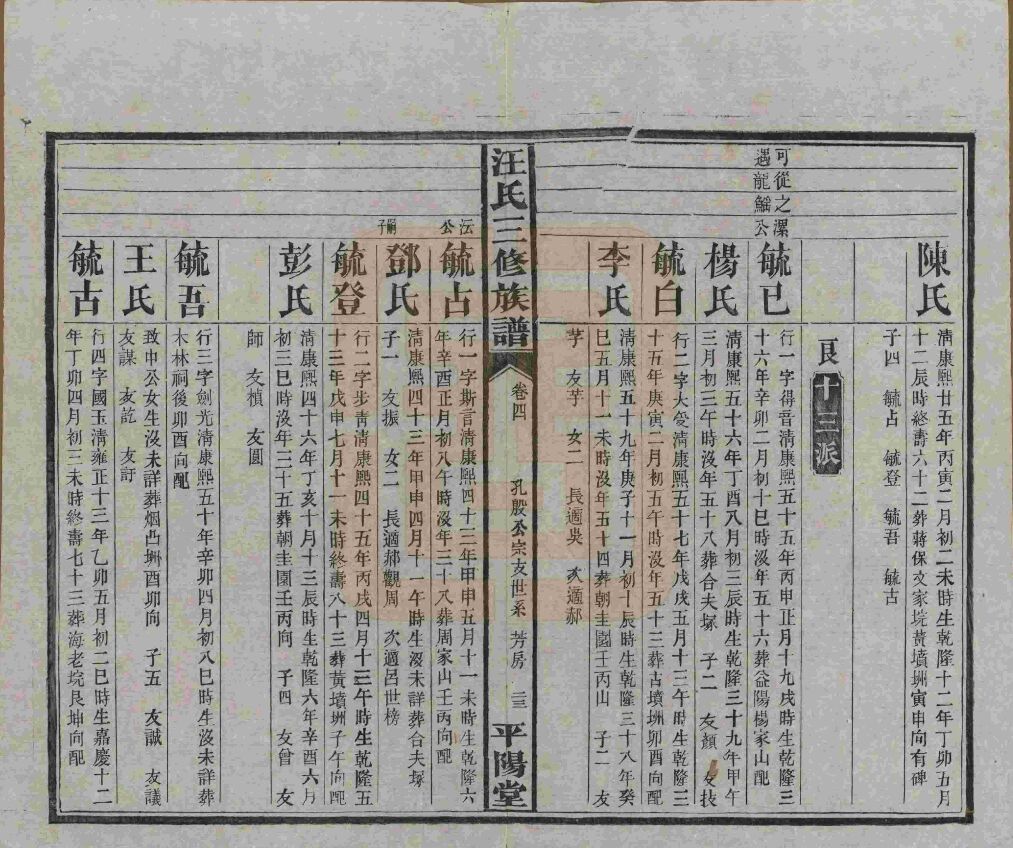 陳氏
清康熙廿五年丙寅二月初二未時生乾隆十二年丁卯五月
十二辰時終壽六十二葬蔣保文家垸黃墳坰寅申向有碑
子四　毓占　毓登　毓吾　毓古
良 十三派
可從之漯
遇龍鯔公
毓已
行一字得音清康熙五十五年丙申正月十九戌時生乾隆三
十六年辛卯二月初十巳時沒年五十六葬益陽楊家山配
楊氏
清康熙五十六年丁酉八月初三辰時生乾隆三十九年甲午
三月初三午時沒年五十八葬合夫塚　子二　友顏　友技
毓白
行二字大受清康熙五十七年戊戌五月十三午時生乾隆三
十五年庚寅二月初五午時沒年五十三葬古墳坰卯酉向配
李氏
清康熙五十九年庚子十一月初十辰時生乾隆三十八年癸
巳五月十一未時沒年五十四葬朝圭園壬丙山　子二　友
芓　友芋　女二　長適吳　次適郝
汪氏三修族譜
卷四
孔殷公宗支世系　芳房　三三
平陽堂
沄公
毓占
行一字斯言清康熙四十三年甲申五月十一未時生乾隆六
年辛酉正月初八午時沒年三十八葬周家山壬丙向配
鄧氏
清康熙四十三年甲申四月十一午時生沒未詳葬合夫塚
嗣子
子一　友振　女二　長適郝觀周　次適呂世榜
毓登
行二字步青清康熙四十五年丙戌四月十三午時生乾隆五
十三年戊申七月十一未時終壽八十三葬黃墳坰子午向配
彭氏
清康熙四十六年丁亥十月十三辰時生乾隆六年辛酉六月
初三巳時沒年三十五葬朝圭園壬丙向　子四　友曾　友
師　友楨　友圓
毓吾
行三字劍光清康熙五十年辛卯四月初八巳時生沒未詳葬
木林祠後卯酉向配
王氏
致中公女生沒未詳葬烟凸坰酉卯向　子五　友誠　友議
友謀　友訖　友訏
毓古
行四字國玉清雍正十三年乙卯五月初二巳時生嘉慶十二
年丁卯四月初三未時終壽七十三葬海老垸艮坤向配